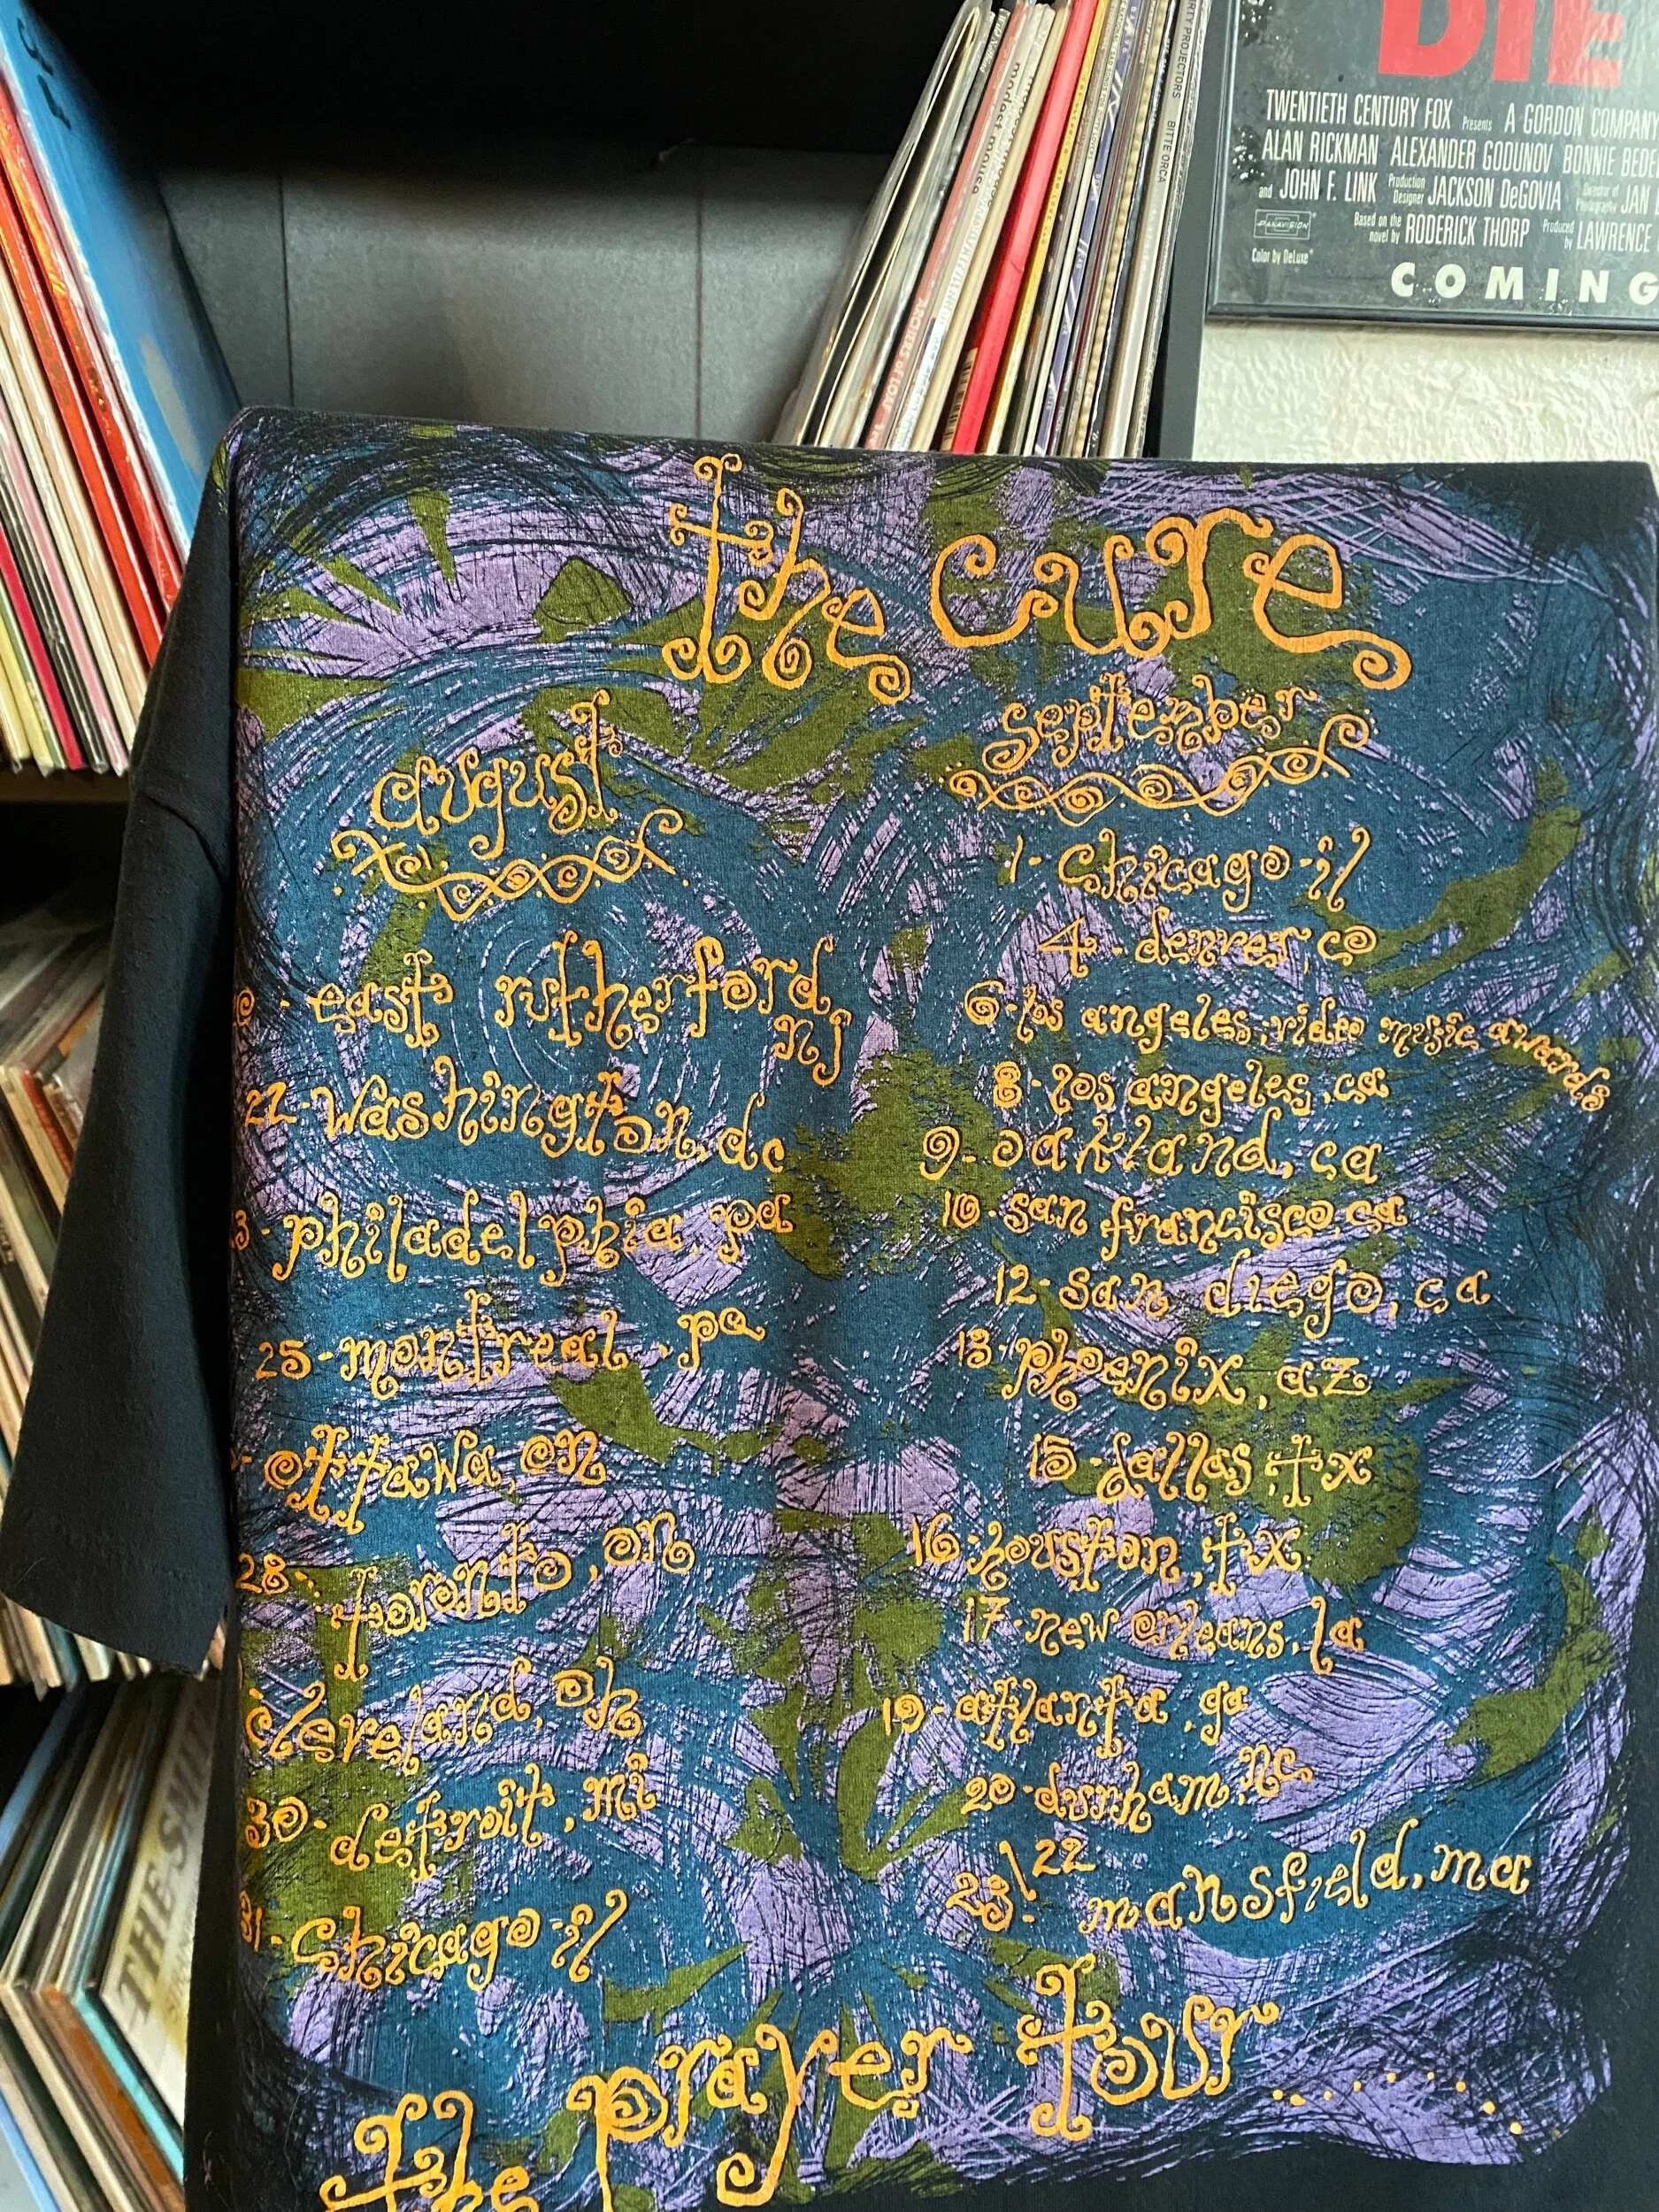 DIE
TWENTIETH CENTURY FOX Presents A GORDON COMPANY
ALAN RICKMAN ALEXANDER GODUNOV BONNIE BEDE
and JOHN F. LINK Production Designer JACKSON DeGOVIA JAN
PANAVISION Based on the novel by RODERICK THORP Produced by LAWRENCE
Color by DeLuxe
COMING
modest mouse
ARCHERS OF LOAF
DIRTY PROJECTORS BITTE ORCA
the cure
august
east rutherford
nj
22-washington, dc
3-philadelphia, pa
25-montreal, pa
ottawa, on
28-toronto, on
cleveland, oh
30-detroit, mi
31-chicago il
september
1-chicago il
4-denver, co
6-los angeles, video music awards
8-los angeles, ca
9-oakland, ca
10-san francisco, ca
12-san diego, ca
13-phoenix, az
15-dallas, tx
16-houston, tx
17-new orleans, la
19-atlanta, ga
20-durham, nc
23/22 mansfield, ma
the prayer tour..........